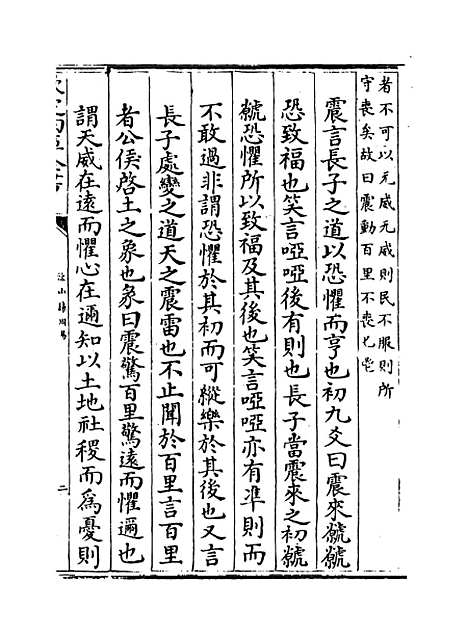 者不可以无威无威則民不服則所
守喪矣故曰震動百里不喪匕鬯
震言長子之道以恐懼而亨也初九爻曰震來虩虩
恐致福也笑言啞啞後有則也長子當震來之初虩
虩恐懼所以致福及其後也笑言啞啞亦有凖則而
不敢過非謂恐懼於其初而可縱樂於其後也又言
長子處變之道天之震雷也不止聞於百里言百里
者公侯啓土之象也彖曰震驚百里驚遠而懼邇也
謂天威在遠而懼心在邇知以土地社稷而為憂則
二